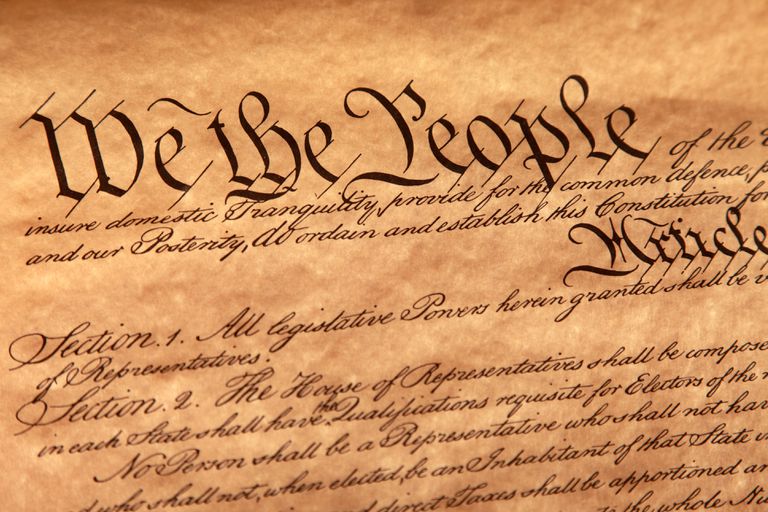 We the People of the
insure domestic Tranquility, provide for the common defence,
and our Posterity, do ordain and establish this Constitution for
Article
Section. 1. All legislative Powers herein granted shall be
of Representatives.
Section. 2. The House of Representatives shall be compose
in each State shall have the Qualifications requisite for Electors of the
No Person shall be a Representative who shall not hav
who shall not, when elected, be an Inhabitant of that State in
direct Taxes shall be apportioned
the whole Nu